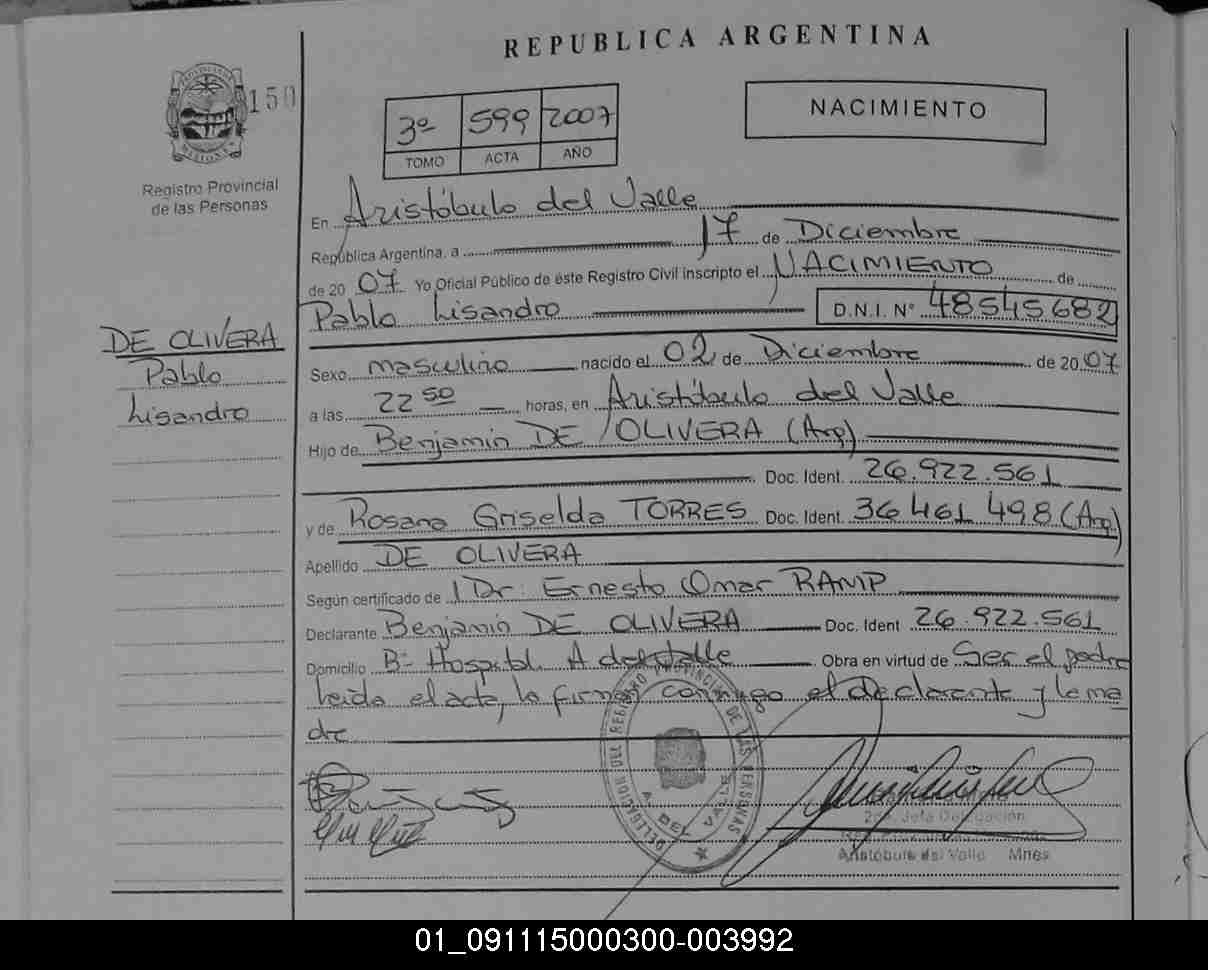 REPUBLICA ARGENTINA
PROVINCIA DE
MISIONES
150
Registro Provincial
de las Personas
3º 599 2007
TOMO ACTA AÑO
NACIMIENTO
En Aristóbulo del Valle
República Argentina, a 17 de Diciembre
de 20 07 Yo Oficial Público de éste Registro Civil inscripto el NACIMIENTO de
Pablo Lisandro D.N.I. Nº 48545682
DE OLIVERA
Pablo
Lisandro
Sexo masculino nacido el 02 de Diciembre de 20 07
a las 22 50 horas, en Aristóbulo del Valle
Hijo de Benjamin DE OLIVERA (Arg)
Doc. Ident. 26.922.561
y de Rosana Griselda TORRES Doc. Ident. 36 461 498 (Arg)
Apellido DE OLIVERA
Según certificado de Dr. Ernesto Omar RAMP
Declarante Benjamin DE OLIVERA Doc. Ident 26.922.561
Domicilio Bº Hospital. A del Valle Obra en virtud de Ser el padre
leida el acta, la firma conmigo el declarante y la ma
dre
DELEGACION DEL REGISTRO PROVINCIAL DE LAS PERSONAS
A. DEL VALLE
2da. Jefa Delegación
Aristóbulo del Valle Mnes
01_091115000300-003992